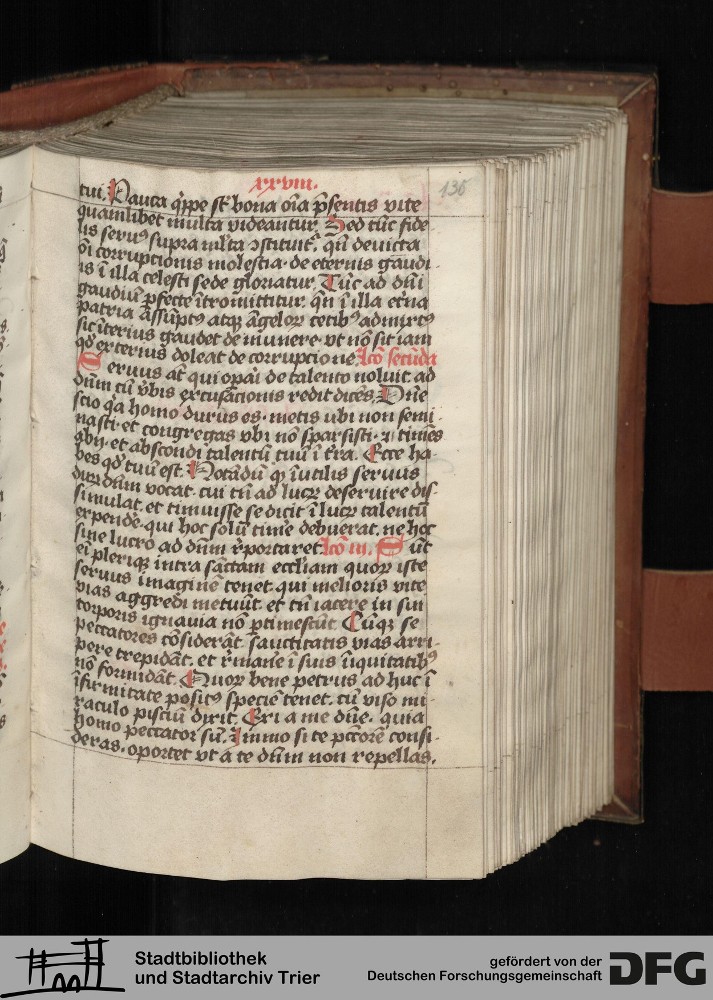 xxviii.
135
tui. Pauca q̇ppe st̄ bona oīa p̄sentis vite
quamlibet multa videantur. Sed tūc fide
lis seruꝰ supra ml̄ta ꝯstituit᷑. qn̄ deuicta
oī corruptionis molestia. de eternis gaudi-
is ī illa celesti sede gloriatur. Tūc ad dn̄i
gaudiū ꝑfecte ītromittitur. qn̄ ī illa etn̄a
patria assūptꝰ atqꝫ āgeloꝝ cetibꝰ admixtꝰ
sic īterius gaudet de munere. vt nō sit iam
qd̄ exterius doleat de corruptione. Lcō secūda
Seruus at̄ qui opāi de talento noluit. ad
dūm cū v̄bis excusationis redit dicēs. Dn̄e
scio q̇a homo durus es. metis vbi non semi-
nasti. et congregas vbi nō sparsisti. ⁊ timēs
abij. et abscondi talentū tuū ī t̄ra. Ecce ha-
bes qd̄ tuū est. Notādū ꝙ īutilis seruus
durū dūm vocat. cui tn̄ ad lucꝝ deseruire dis-
simulat. et timuisse se dicit ī lucꝝ talentū
expende͛. qui hoc solū time͛ debuerat. ne hoc
sine lucro ad dūm r̄portaret. Lcō iii. Sūt
ei plerīqꝫ intra sāctam eccl̄iam quoꝝ iste
seruus imaginē tenet. qui melioris vite
vias aggredi metuūt. et tn̄ iacere in sui
torporis ignauia nō ꝑtimescūt. Cūqꝫ se
peccatores cōsiderāt. sanctitatis vias arri-
pere trepidāt. et r̄mane͛ ī suis īiquitatibꝰ
nō formidāt. Quoꝝ bene petrus ad huc ī
īfirmitate positꝰ speciē tenet. cū viso mi-
raculo pisciū dixit. Exi a me dn̄e. quia
homo peccator sū. Immo si te pctōrē consi-
deras. oportet vt a te dūm non repellas.
Stadtbibliothek
und Stadtarchiv Trier
gefördert von der
Deutschen Forschungsgemeinschaft DFG